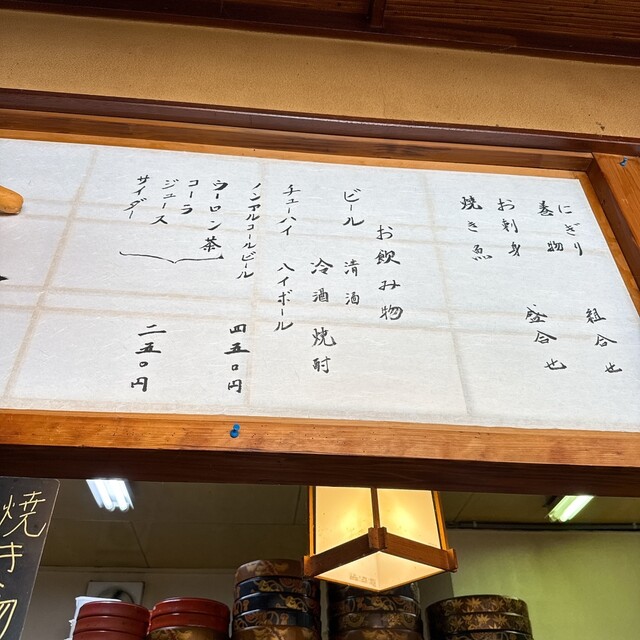 にぎり 組合せ
巻物
お刺身 盛合せ
焼き魚
お飲み物
ビール 清酒
冷酒 焼酎
チューハイ ハイボール
ノンアルコールビール 四五〇円
ウーロン茶
コーラ
ジュース
サイダー 二五〇円
焼き